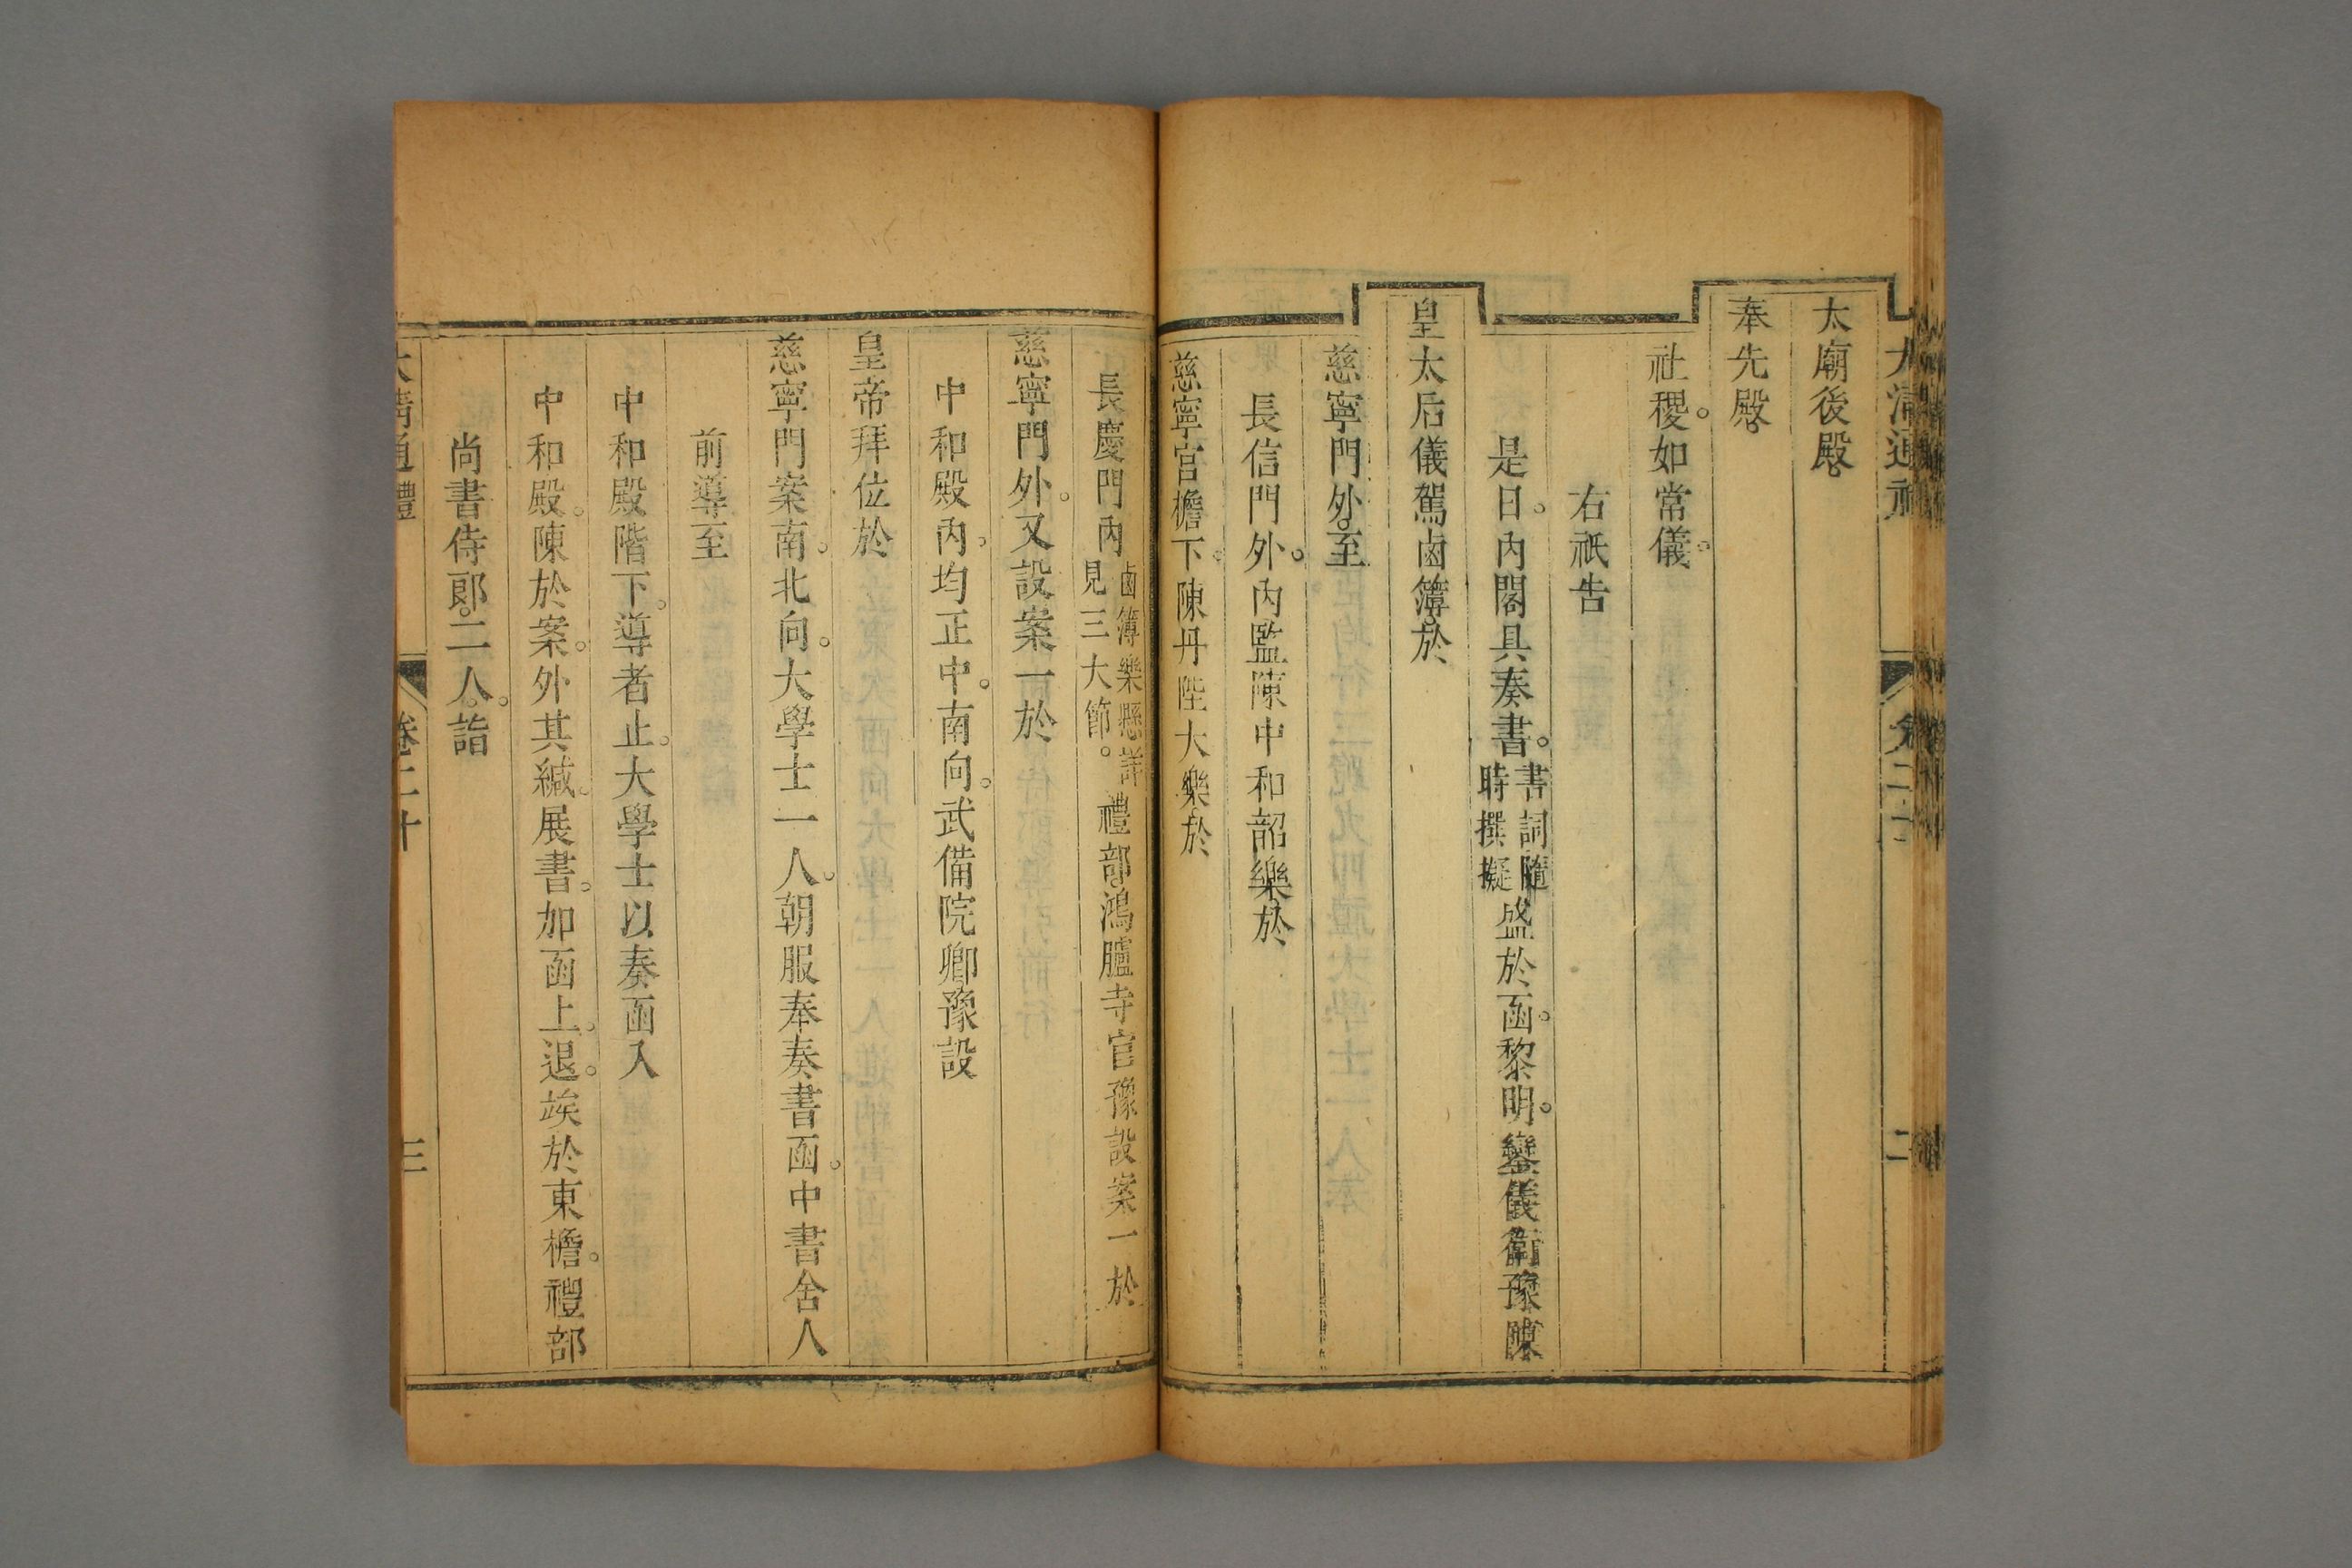 大清通禮 卷二十 二
太廟後殿。
奉先殿。
社稷。如常儀。
右祇告
是日。內閣具奏書。書詞隨時撰擬盛於函。黎明。鑾儀衛豫陳
皇太后儀駕鹵簿。於
慈寧門外。至
長信門外。內監陳中和韶樂於
慈寧宮檐下。陳丹陛大樂於
長慶門內鹵簿樂懸詳見三大節。禮部鴻臚寺官豫設案一於
慈寧門外。又設案一於
中和殿內。均正中。南向。武備院卿豫設
皇帝拜位於
慈寧門案南。北向。大學士一人。朝服奉奏書函。中書舍人
前導至
中和殿階下。導者止。大學士以奏函入
中和殿。陳於案。外其緘。展書。加函上。退。竢於東檐。禮部
尚書侍郎。二人。詣
大清通禮 卷二十 三